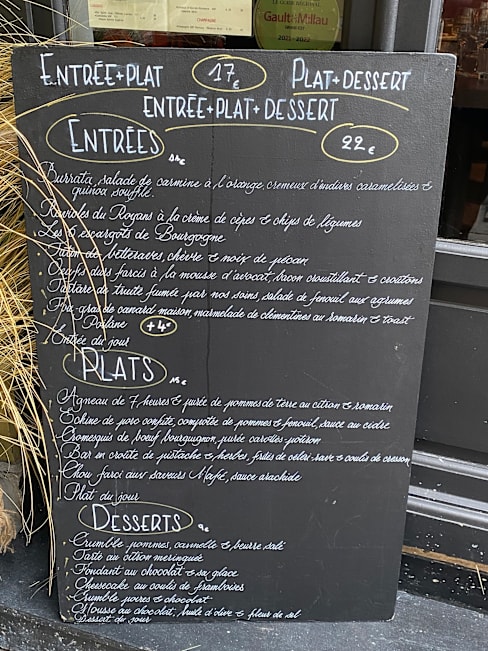 CHAMPAGNE
Gault&Millau
2021-2022
ENTRÉE+PLAT 17€ PLAT+DESSERT
ENTRÉE+PLAT+DESSERT
ENTRÉES 22€
Burrata, salade de carmine à l'orange, cremeux d'endives caramelisées &
quinoa soufflé.
Ravioles du Royans à la crème de cèpes & chips de légumes
Les 6 escargots de Bourgogne
de betteraves, chèvre & noix de pécan
Oeufs durs farcis à la mousse d'avocat, bacon croustillant & croûtons
Tartare de truite fumée par nos soins, salade de fenouil aux agrumes
Foie gras de canard maison, marmelade de clémentines au romarin & toast
Poilane +4€
Entrée du jour
PLATS
Agneau de 7 heures & purée de pommes de terre au citron & romarin
Echine de porc confite, compotée de pommes & fenouil, sauce au cidre
Cromesquis de boeuf bourguignon, purée carottes potiron
Bar en croûte de pistache & herbes, frites de céleri-rave & coulis de cresson
Chou farci aux saveurs Mafé, sauce arachide
Plat du jour
DESSERTS 9€
Crumble pommes, cannelle & beurre salé
Tarte au citron meringuée
Fondant au chocolat & sa glace
Cheesecake au coulis de framboises
Crumble poires & chocolat
Mousse au chocolat, huile d'olive & fleur de sel
Dessert du jour